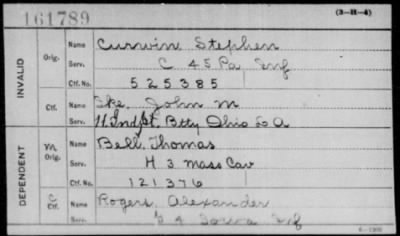 161789
(3-H-4)
INVALID
Orig.
Name Curwin Stephen
Serv. C 45 Pa Inf
Ctf. No. 525385
Ctf.
Name John M
Serv. 11 Indpt. Btty Ohio L A
DEPENDENT
Orig.
Name Bell, Thomas
Serv. H 3 Mass Cav
Ctf. No. 121376
C
Ctf.
Name Rogers Alexander
Serv. 4 Iowa Inf